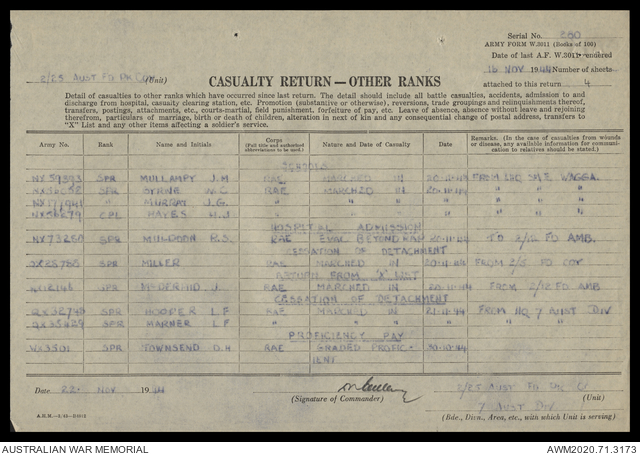 Serial No. 280
ARMY FORM W.3011 (Books of 100)
Date of last A.F. W.3011 rendered
2/25 AUST FD PK COY (Unit)
16 NOV 1944 Number of sheets
CASUALTY RETURN—OTHER RANKS
attached to this return 4
Detail of casualties to other ranks which have occurred since last return. The detail should include all battle casualties, accidents, admission to and
discharge from hospital, casualty clearing station, etc. Promotion (substantive or otherwise), reversions, trade groupings and relinquishments thereof,
transfers, postings, attachments, etc., courts-martial, field punishment, forfeiture of pay, etc. Leave of absence, absence without leave and rejoining
therefrom, particulars of marriage, birth or death of children, alteration in next of kin and any consequential change of postal address, transfers to
"X" List and any other items affecting a soldier's service.
Army No. Rank Name and Initials Corps (Full title and authorised abbreviations to be used.) Nature and Date of Casualty Date Remarks. (In the case of casualties from wounds or disease, any available information for communication to relatives should be stated.)
SCHOOLS
NX59393 SPR MULLAMPY J.M RAE MARCHED IN 20-11-44 FROM LHQ SME WAGGA
SPR BYRNE RAE MARCHED IN 20-11-44 " " "
" MURRAY J.G. " " " " " " "
CPL HAYES H.J " " " " " " "
HOSPITAL ADMISSION
NX73250 SPR MULDOON R.S. RAE EVAC BEYOND RAP 20-11-44 TO 2/12 FD AMB.
CESSATION OF DETACHMENT
SPR MILLER RAE MARCHED IN FROM 2/5 FD COY
RETURN FROM "X" LIST
SPR McDERMID J. RAE MARCHED IN 20-11-44 FROM 2/12 FD AMB
CESSATION OF DETACHMENT
SPR HOOPER L F RAE MARCHED IN 21-11-44 FROM HQ 7 AUST DIV
SPR MARNER L F " " " " " "
PROFICIENCY PAY
SPR TOWNSEND D.H RAE GRADED PROFIC- 30-10-44
IENT
Date 22 NOV 1944
(Signature of Commander)
2/25 AUST FD PK Coy
(Unit)
7 AUST DIV
(Bde., Divn., Area, etc., with which Unit is serving)
AUSTRALIAN WAR MEMORIAL
AWM2020.71.3173